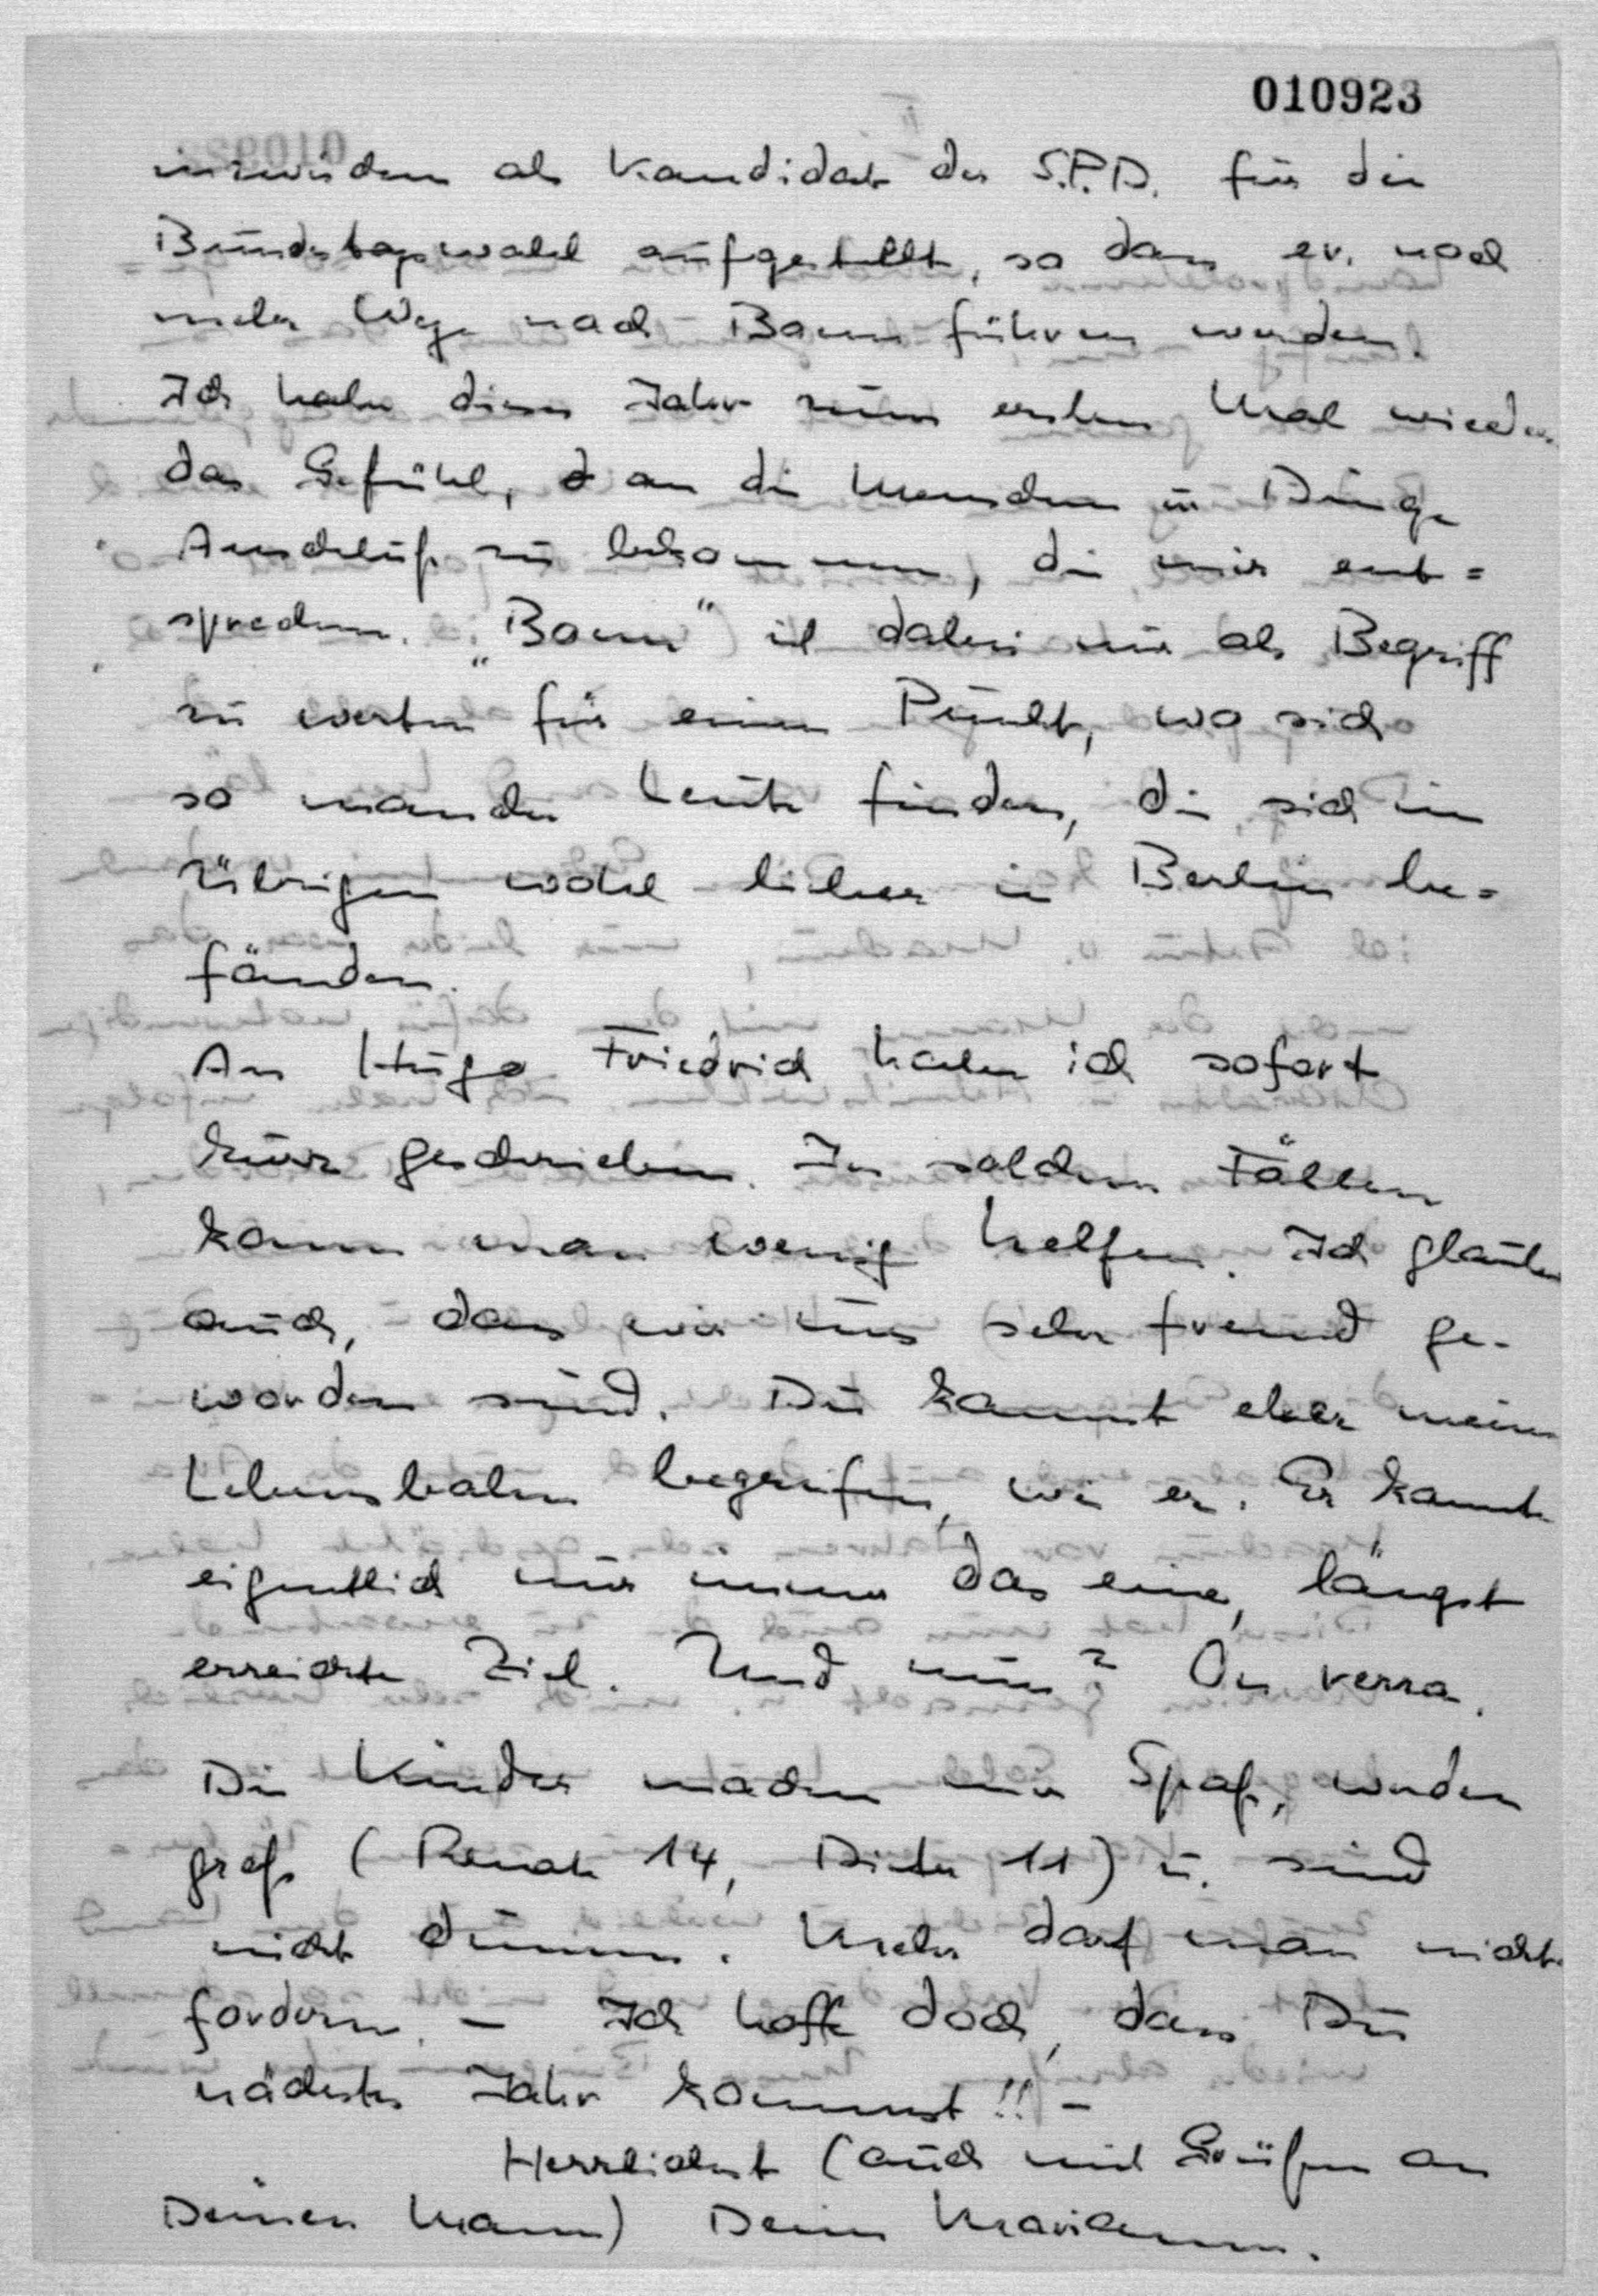 010923
inzwischen als Kandidat der S.P.D. für die
Bundestagswahl aufgestellt, so dass ev. noch
mehr Wege nach Bonn führen werden.
Ich habe dieses Jahr zum ersten Mal wieder
das Gefühl, an die Menschen u. Dinge
Anschluß zu bekommen, die mir ent=
sprechen. „Bonn" ist dabei nur als Begriff
zu werten für einen Punkt, wo sich
so manche Leute finden, die sich im
Übrigen wohl lieber in Berlin be=
fänden.
An Hugo Friedrich habe ich sofort
kurz geschrieben. In solchen Fällen
kann man wenig helfen. Ich glaube
auch, dass wir uns sehr fremd ge-
worden sind. Du kannst eher meine
Lebensbahn begreifen, wie er. Er kannte
eigentlich nur immer das eine, längst
erreichte Ziel. Und nun? On verra.
Die Kinder machen mir Spaß, werden
groß (Renate 14, Dieter 11) u. sind
nicht dumm. Mehr darf man nicht
fordern. – Ich hoffe doch, dass Du
nächstes Jahr kommst!! –
Herzlichst (auch mit Grüßen an
Deinen Mann) Deine Marianne.